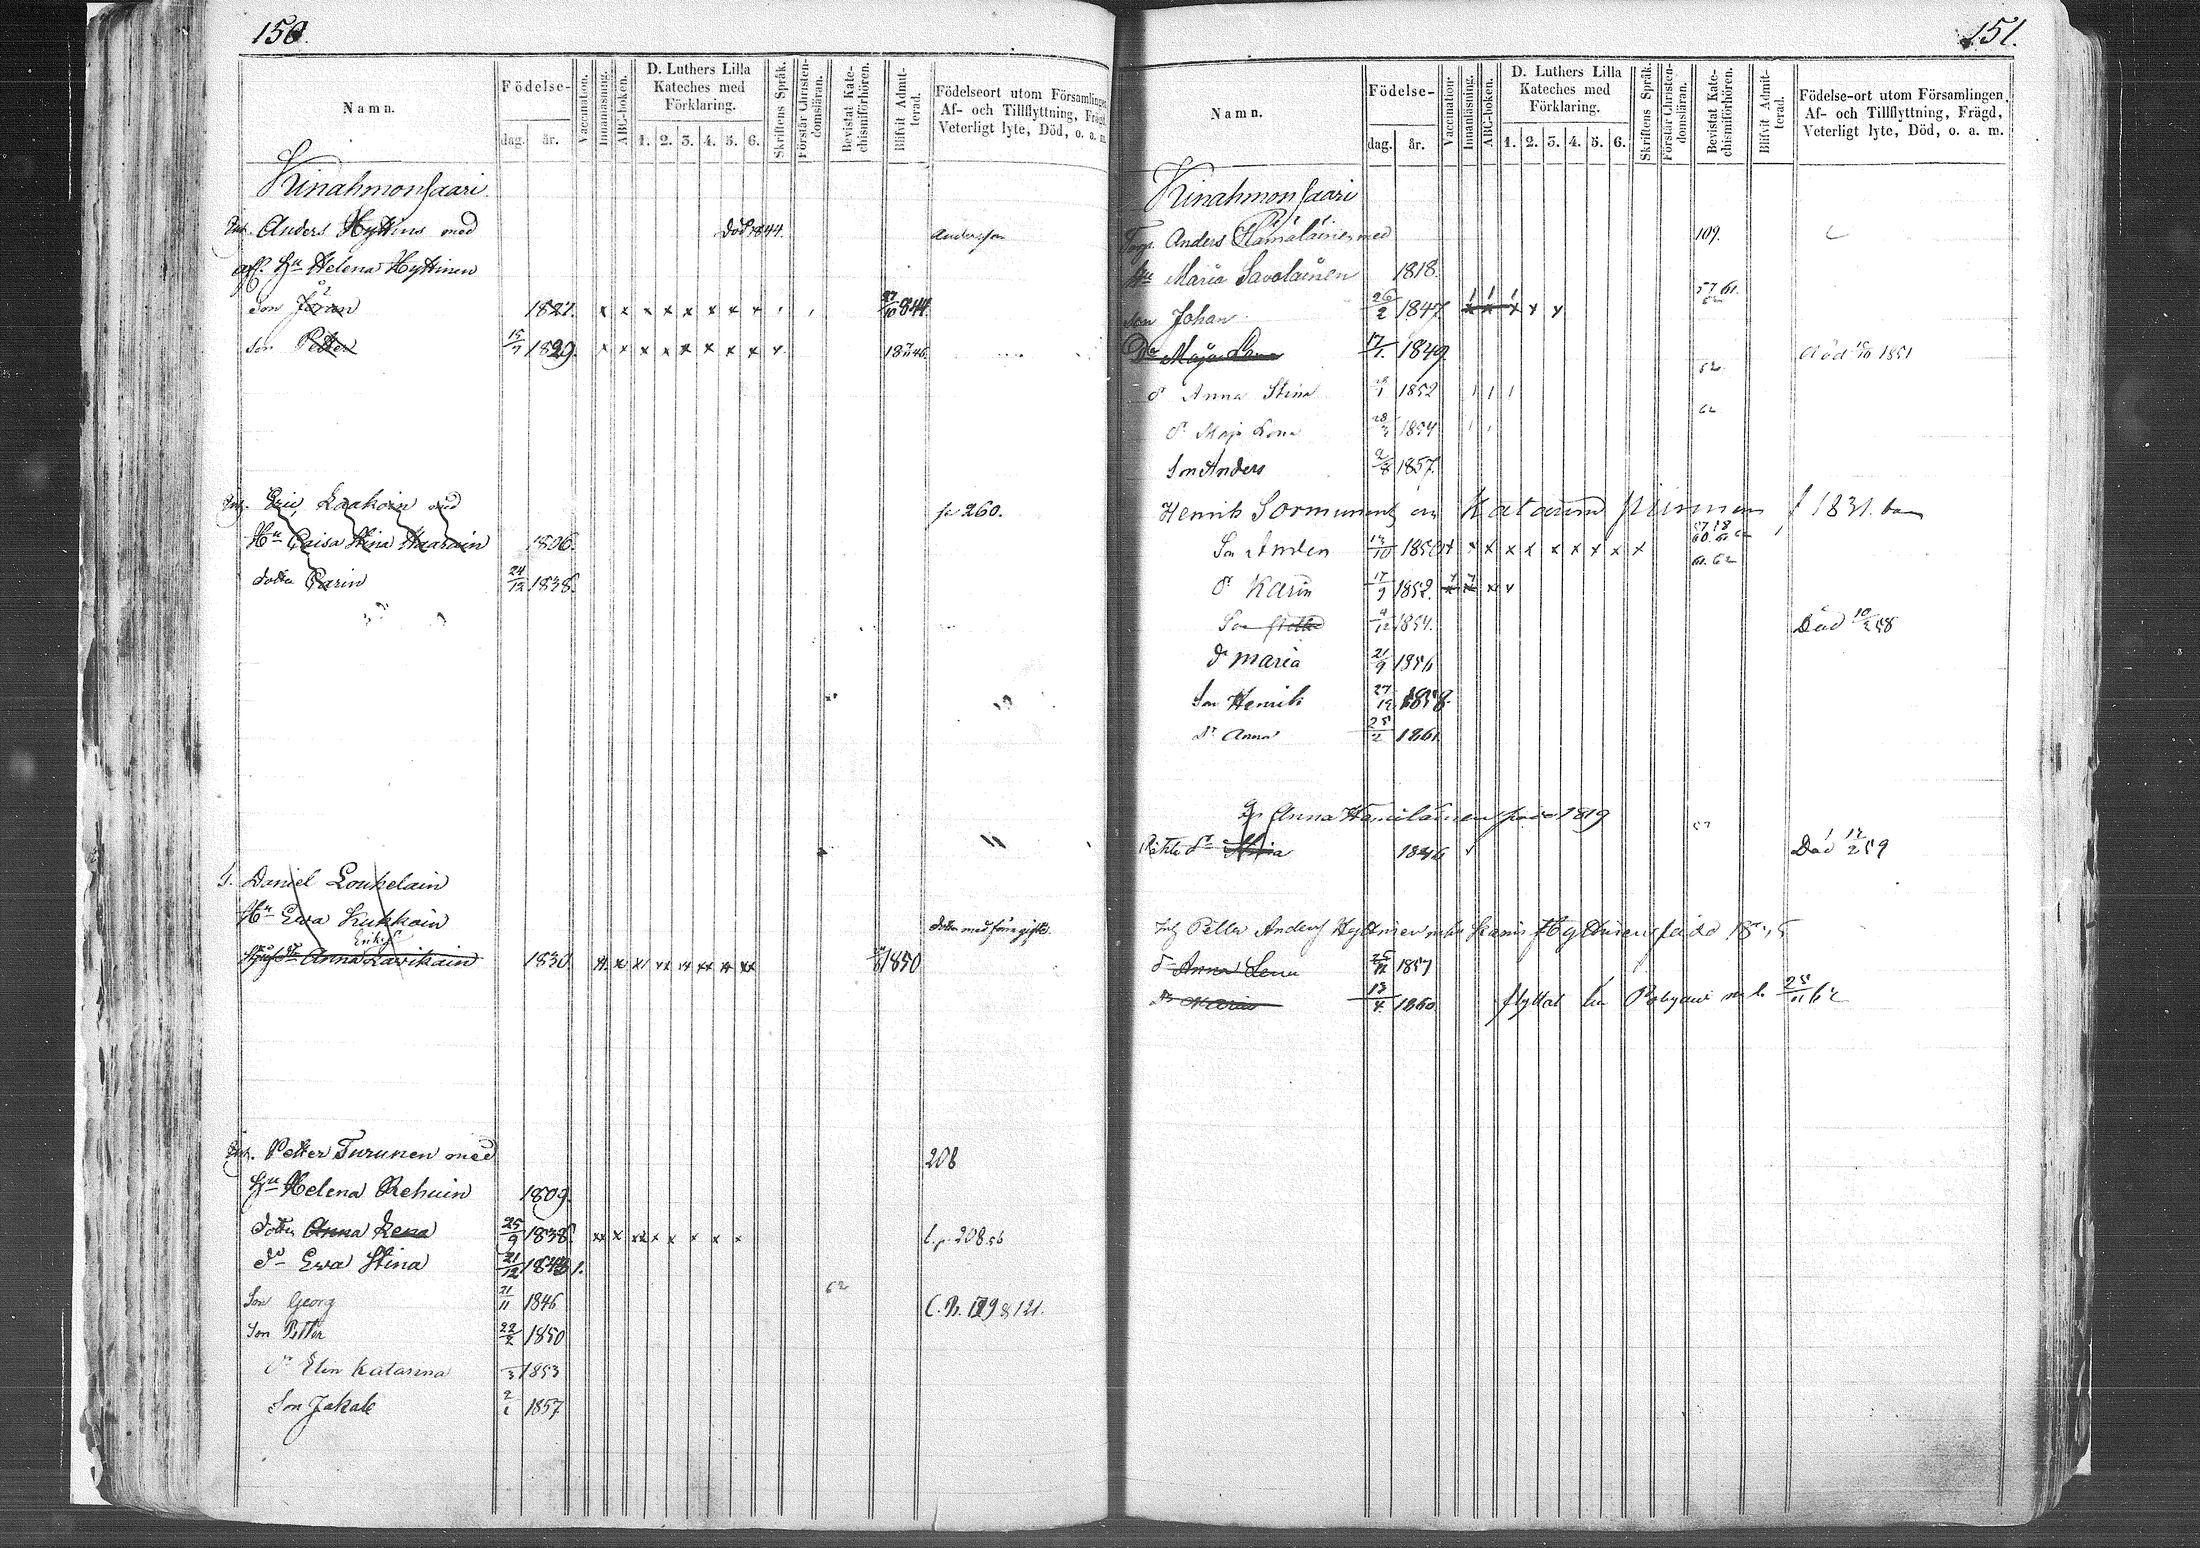 150.
Namn.
Födelse-
dag. år.
Vaccination.
Innanläsning.
ABC-boken.
D. Luthers Lilla
Kateches med
Förklaring.
1. 2. 3. 4. 5. 6.
Skriftens Språk.
Förstår Christen-
domsläran.
Bevistat Kate-
chismiförhören.
Blifvit Admit-
terad.
Födelseort utom Församlingen
Af- och Tillflyttning, Frägd,
Veterligt lyte, Död, o. a. m.
Kinahmonsaari
Anders Hyttinen med död 1844. Andersson
Hu Helena Hyttinen
Son Jöran 1827. x x x x x x x x 27/10 844.
Son Petter 15/7 1829. x x x x x x x x x 1846.
Eric Laakoin med 260.
Hu Caisa Stina 1806.
dotter Carin 24/12 1838.
Daniel Loukelain
Hu Ewa Kukkoin
Eriksd
Anna Lavikain 1830 1850
Petter Turunen med 208
Hu Helena Rehuin 1809.
dotter Anna Lena 25/9 1838. 208. 56
dr Ewa Stina 21/12 184
Son Georg 21/11 1846 62 & 121.
Son Petter 22/2 1850
dr Elin Katarina /3 1853
Son Jakob 2/1 1857
151.
Namn.
Födelse-
dag. år.
Vaccination
Innanläsning.
ABC-boken.
D. Luthers Lilla
Kateches med
Förklaring.
1. 2. 3. 4. 5. 6.
Skriftens Språk.
Förstår Christen-
domsläran.
Bevistat Kate-
chismiförhören.
Blifvit Admit-
terad.
Födelse-ort utom Församlingen,
Af- och Tillflyttning, Frägd,
Veterligt lyte, Död, o. a. m.
Kinahmonsaari
Torp. Anders Hämäläinen med 109.
Hu Maria Savolainen 1818. 57. 61.
Son Johan 26/2 1847
Dr Maja Lena 17/1 1849 död 1851
62
dr Anna Stina 1852
62
dr Maja Lena 28/3 1854
Son Anders 2/8 1857
Henrik Sormunen Katarina Pirinen f 1831.
Son Anders 13/10 1850 x x x x x x x x x
61. 62
dr Karin 17/9 1852.
Son Petter 4/12 1854. Död 10/2 58
dr Maria 21/9 1856
Son Henrik 27/12 1858.
dr Anna 25/2 1861
Anna Hämäläinen född 1819
dr Maria 1846 Död 17/2 59
Petter Anders Hyttinen Hyttinen född 18
dr Anna Lena 1857
dr Maria 13/4 1860 flyttat 25/11 62